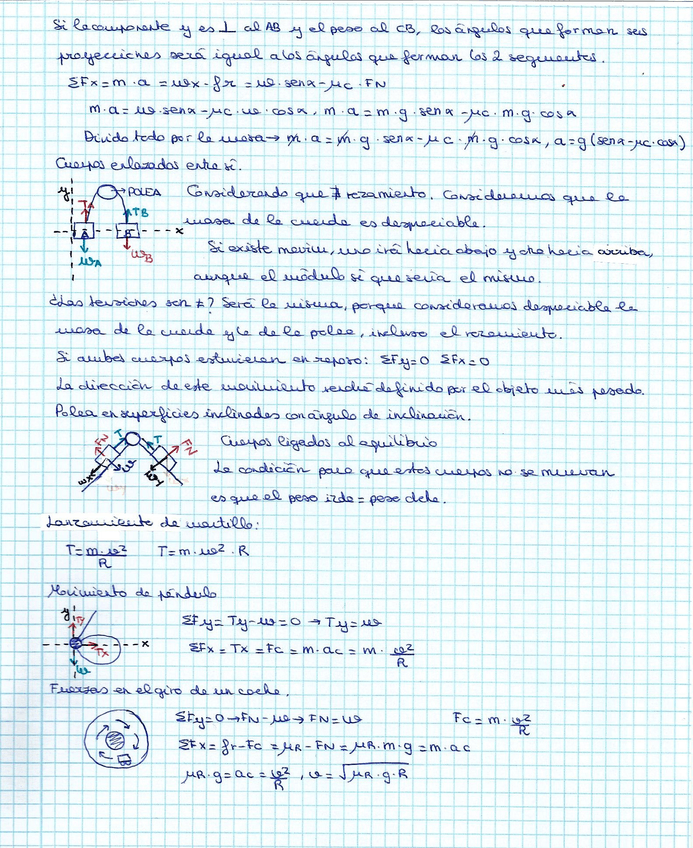 Si la componente y es ⊥ al AB y el peso al CB, los ángulos que forman sus
proyecciones será igual a los ángulos que forman los 2 segmentos.
ΣFx = m · a = wx - fr = w · senα - μc · FN
m · a = w · senα - μc · w · cosα, m · a = m · g · senα - μc · m · g · cosα
Divido todo por la masa → m · a = m · g · senα - μc · m · g · cosα, a = g (senα - μc · cosα)
Cuerpos enlazados entre sí.
y POLEA Considerando que ∄ rozamiento. Consideramos que la
T TB masa de la cuerda es despreciable.
A B x
wA wB Si existe movim, uno irá hacia abajo y otro hacia arriba,
aunque el módulo sí que sería el mismo.
¿Las tensiones son ≠? Será la misma, porque consideramos despreciable la
masa de la cuerda y la de la polea, incluso el rozamiento.
Si ambos cuerpos estuvieran en reposo: ΣFy = 0 ΣFx = 0
La dirección de este movimiento vendrá definido por el objeto más pesado.
Polea en superficies inclinadas con ángulo de inclinación.
FN T T FN Cuerpos ligados al equilibrio
wx w wy La condición para que estos cuerpos no se muevan
es que el peso izda = peso dcha.
Lanzamiento de martillo:
T = m · v²/R T = m · w² · R
Movimiento de péndulo
y Ty ΣFy = Ty - w = 0 → Ty = w
Tx x ΣFx = Tx = Fc = m · ac = m · v²/R
w
Fuerzas en el giro de un coche.
ΣFy = 0 → FN - w → FN = w Fc = m · v²/R
ΣFx = fr - Fc = μR - FN = μR · m · g = m · ac
μR · g = ac = v²/R, v = √μR · g · R